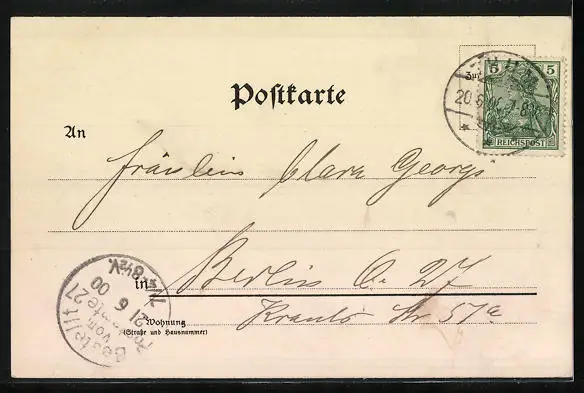 Postkarte
5 5
REICHSPOST
20.6.00 7-8
An
Fräulein Clara Georgs
in Berlin O. 27
Wohnung
(Straße und Hausnummer)
Krauts Str 57a
Bestellt
vom
Postamte 27
21 6 00
7¼-8½V.